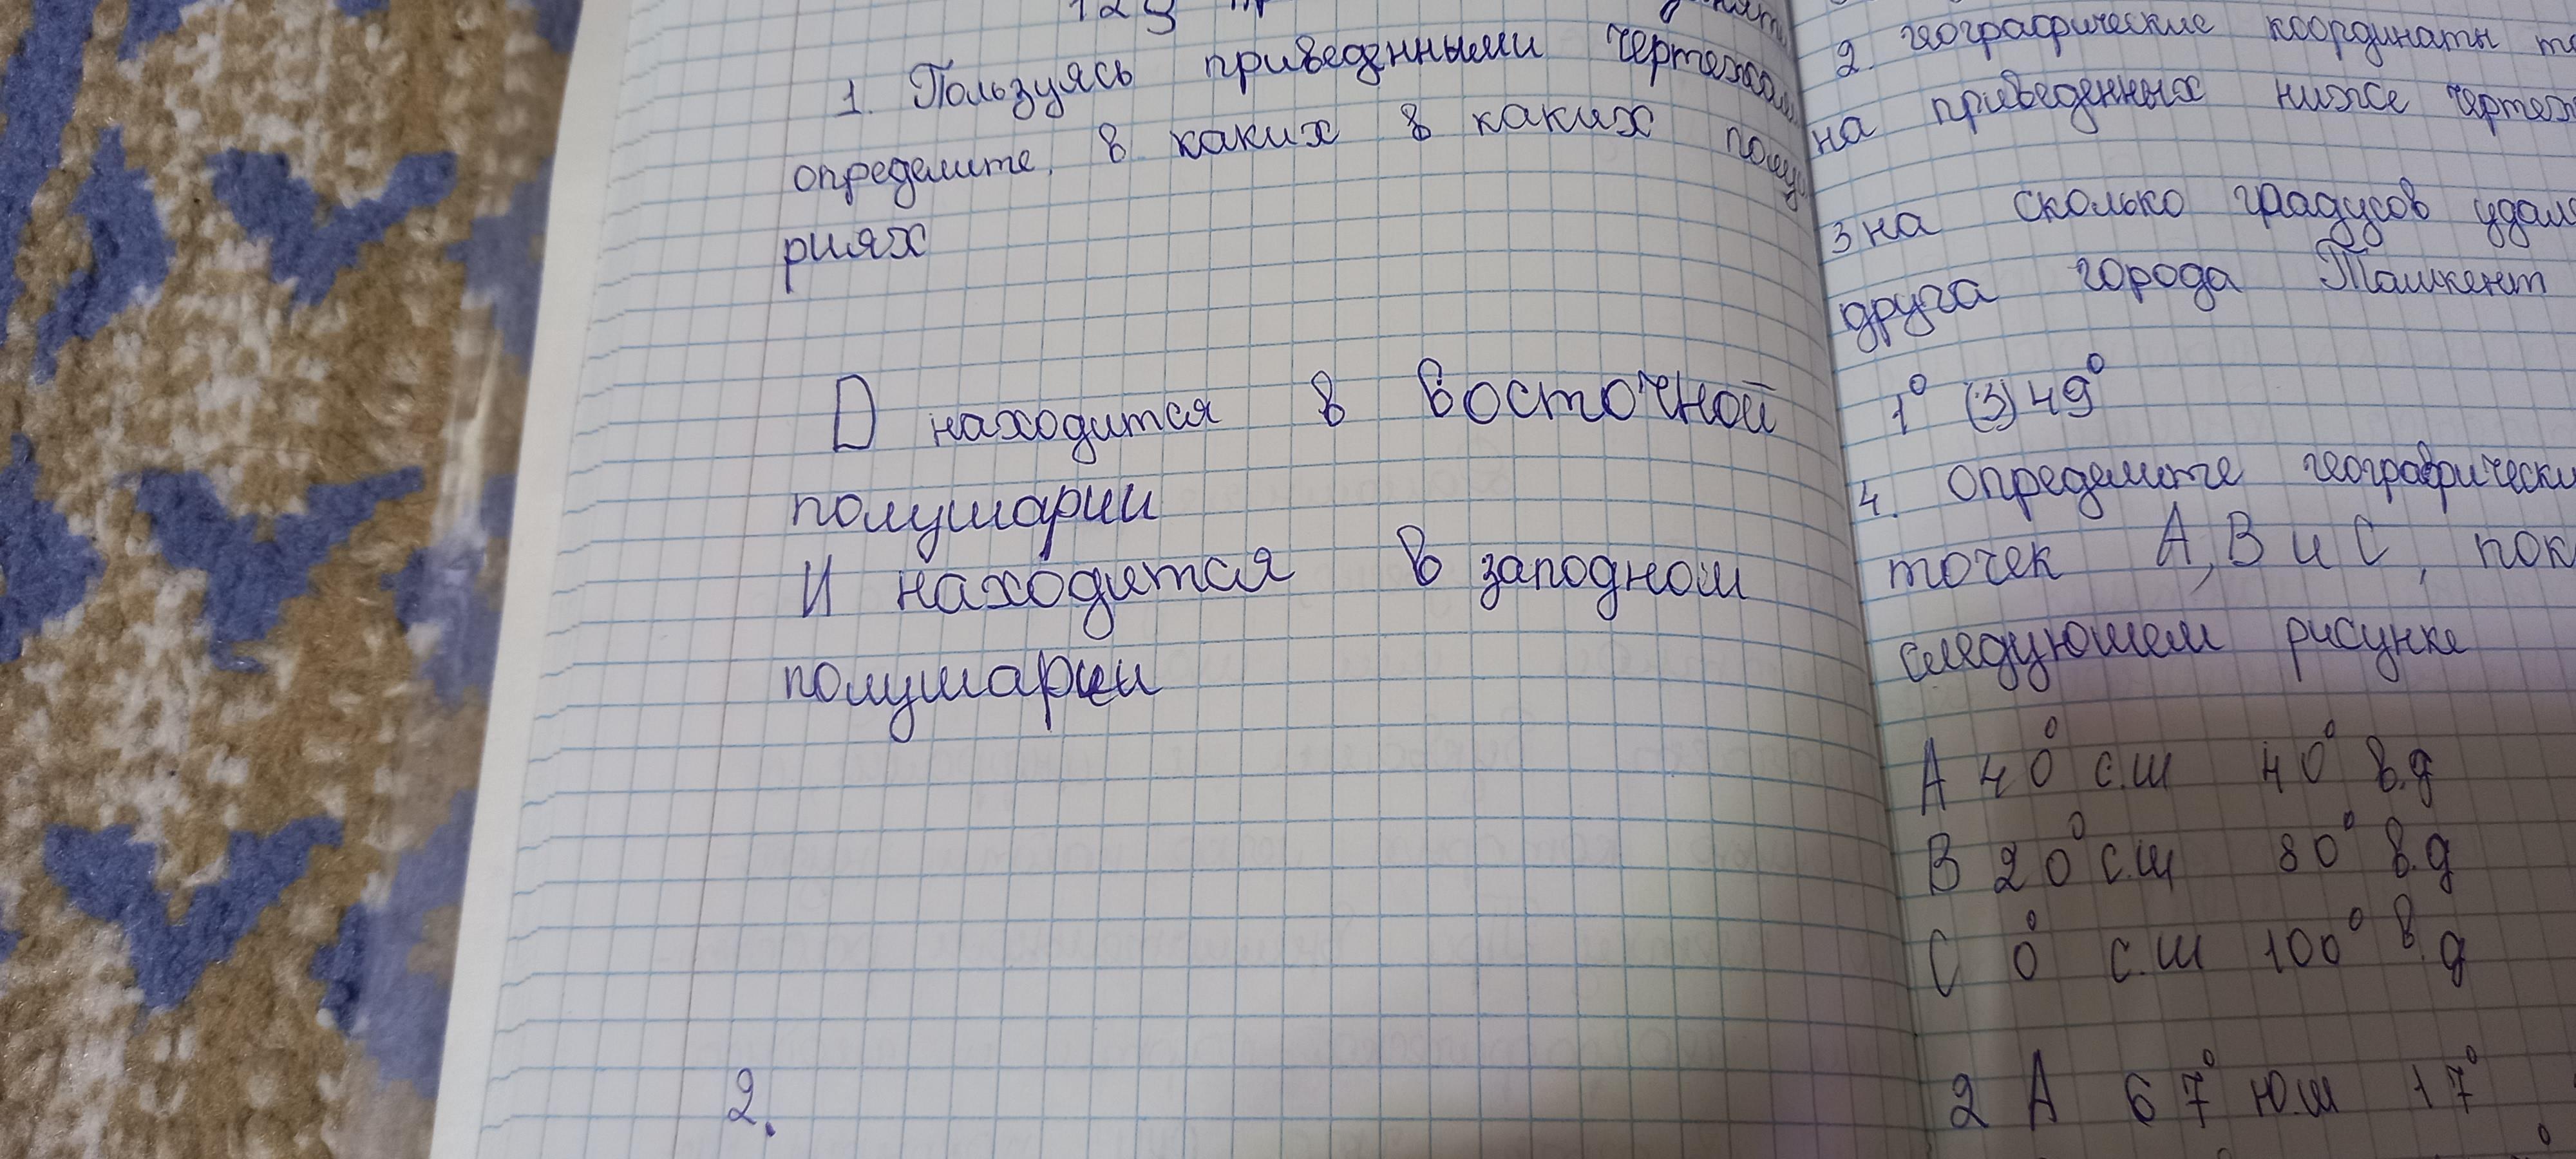 1. Пользуясь приведенными чертежам
определите, в каких в каких полуша
риях
D находится в Восточной
полушарии
И находится в заподном
полушарии
2.
2. географические координаты
на приведенных ниже чертеж
3 на сколько градусов удале
друга города Ташкент
1° (3) 49°
4. Определите географически
точек А, В и С, пок
следуюшем рисунке
А 40° с.ш 40° в.д
В 20° с.ш 80° в.д
С 0° с.ш 100° в.д
2 А 67° ю.ш 17°